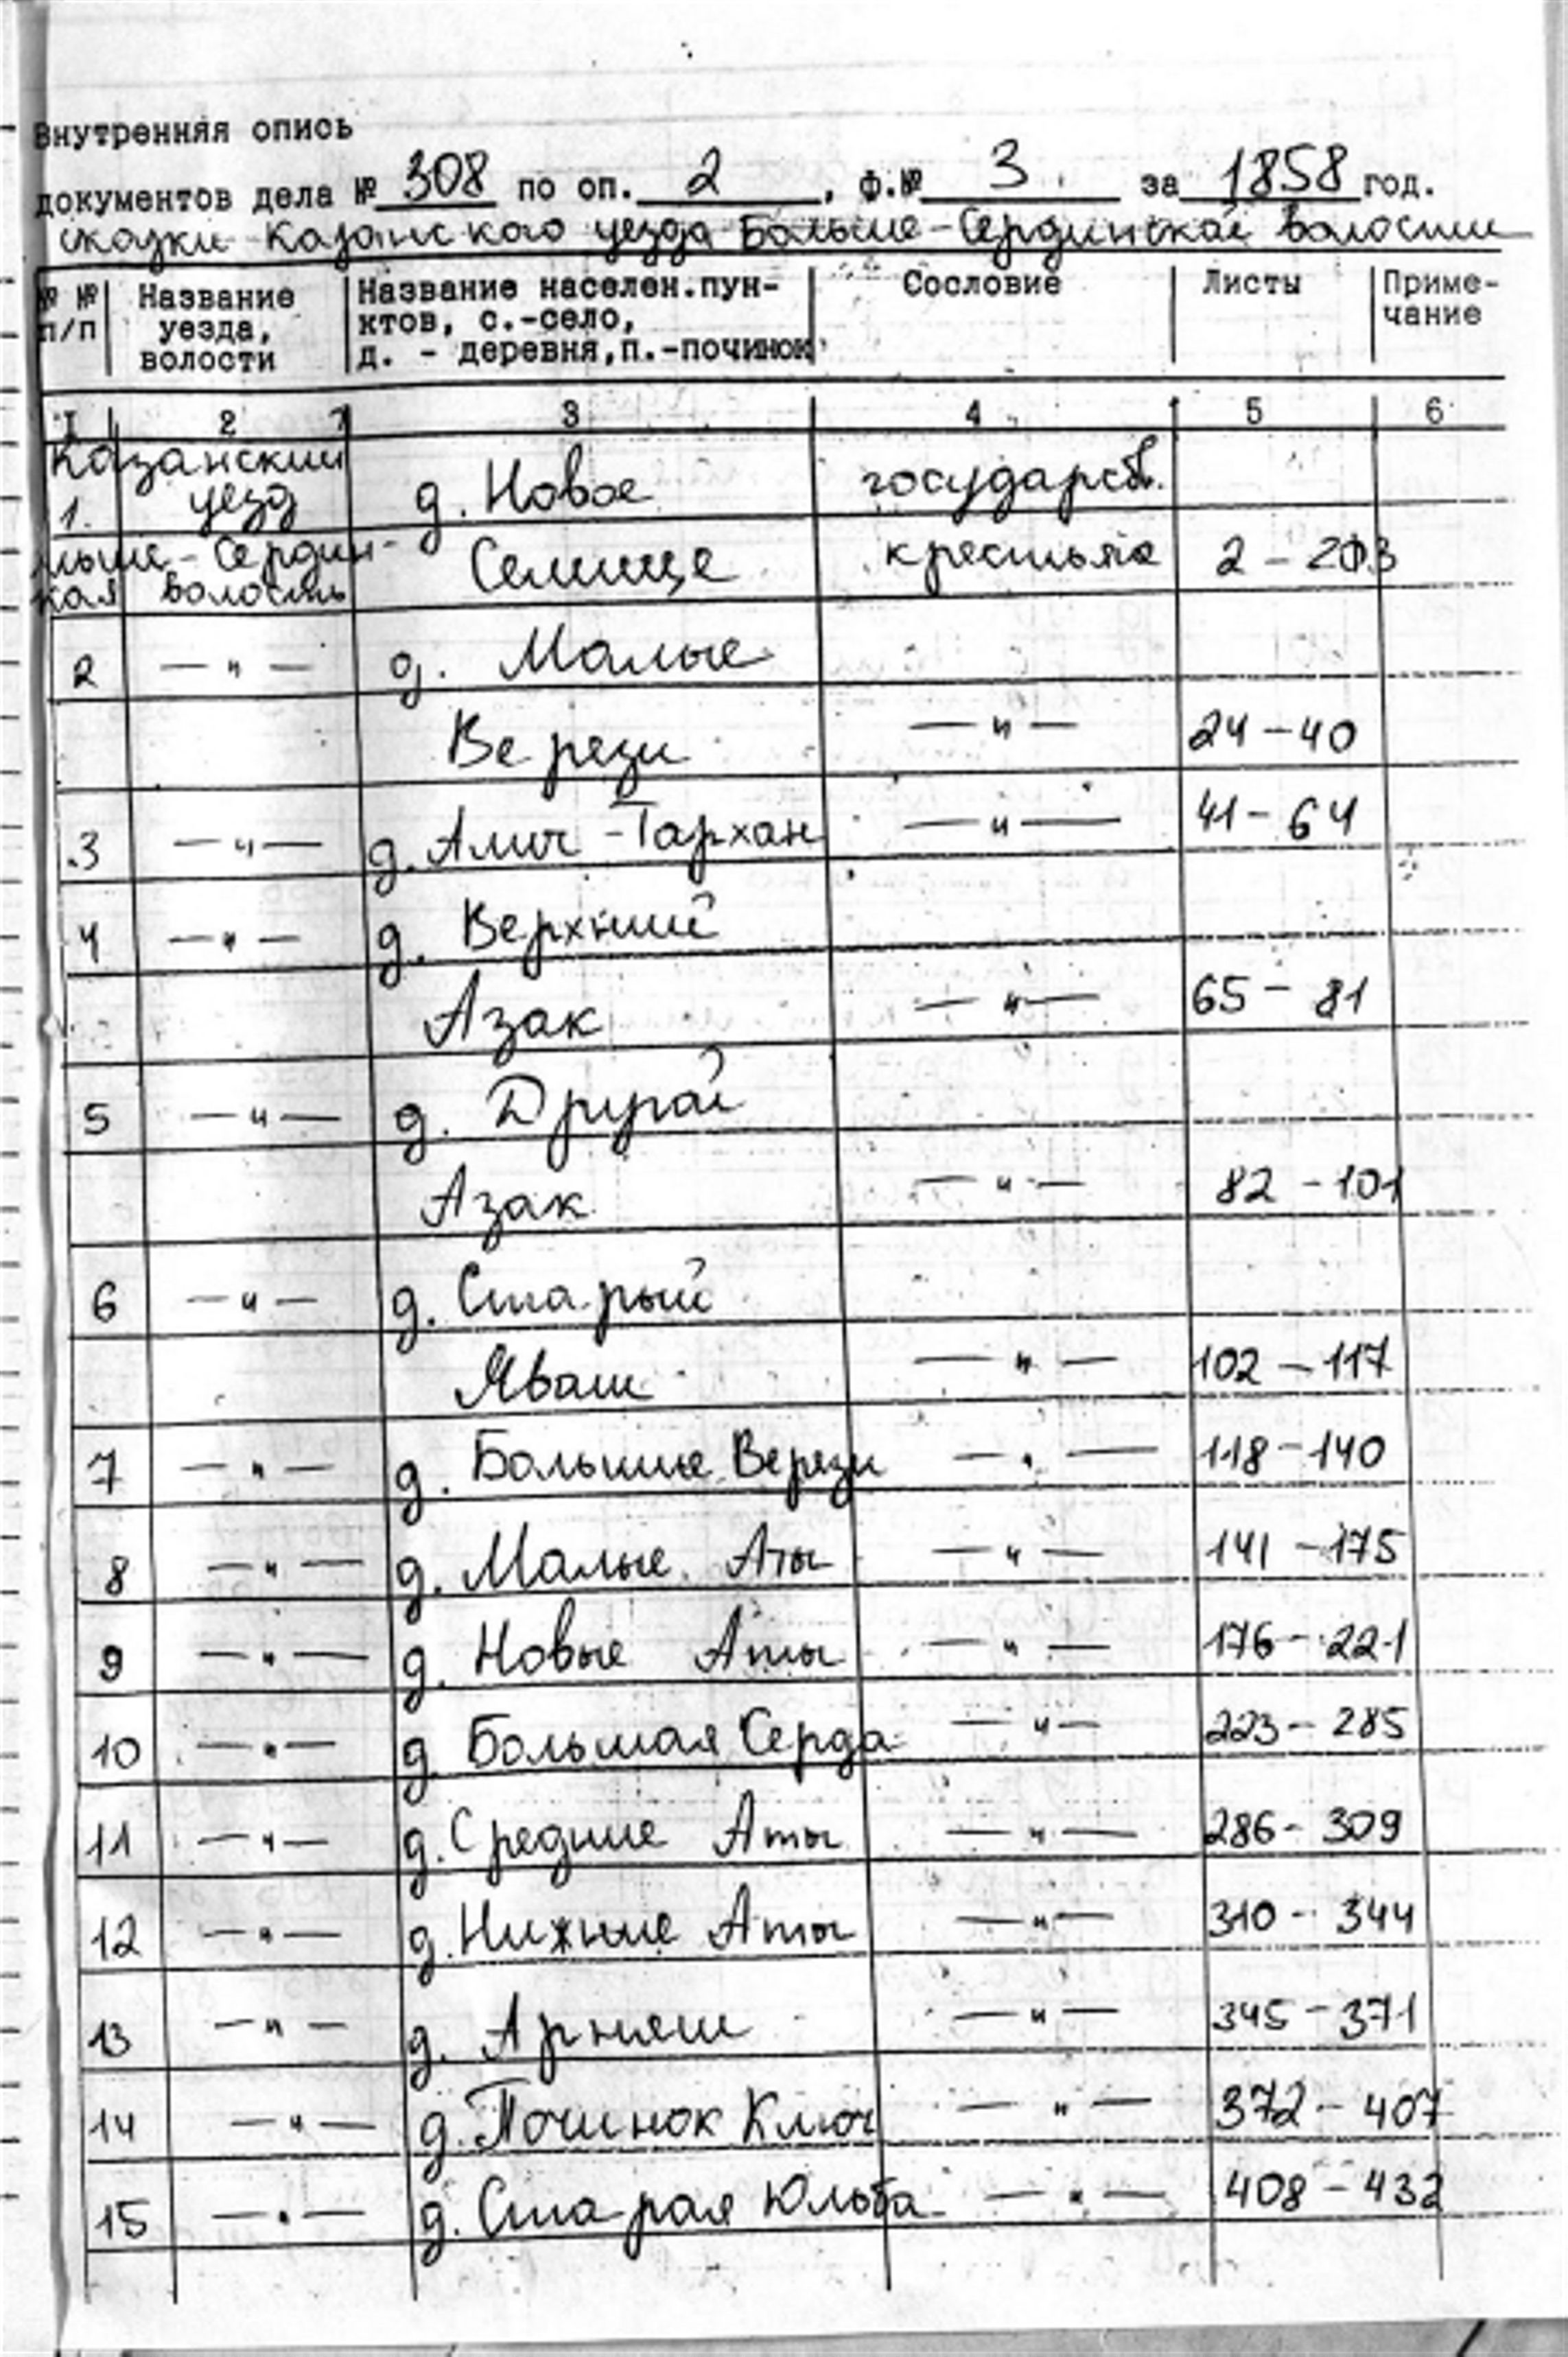 Внутренняя опись
документов дела № 308 по оп. 2, ф.№ 3 за 1858 год.
сказки Казанского уезда Больше-Сердинской волости
№ № п/п | Название уезда, волости | Название населен.пунктов, с.-село, д. - деревня, п.-починок | Сословие | Листы | Примечание
1 2 3 4 5 6
Казанский
1. уезд д. Новое государств.
льше-Сердин-
Селище крестьяне 2 -
кая волость
2 — " — д. Малые
Верези — " — 24 - 40
3 — " — д. Алич-Тархан — " — 41 - 64
4 — " — д. Верхний
Азак — " — 65 - 81
5 — " — д. Другой
Азак — " — 82 - 101
6 — " — д. Старый
Яваш — " — 102 - 117
7 — " — д. Большие Верези — " — 118 - 140
8 — " — д. Малые Аты — " — 141 - 175
9 — " — д. Новые Аты — " — 176 - 221
10 — " — д. Большая Серда — " — 223 - 285
11 — " — д. Средние Аты — " — 286 - 309
12 — " — д. Нижние Аты — " — 310 - 344
13 — " — д. Арняш — " — 345 - 371
14 — " — д. Починок Ключ — " — 372 - 407
15 — " — д. Старая Юльба — " — 408 - 432